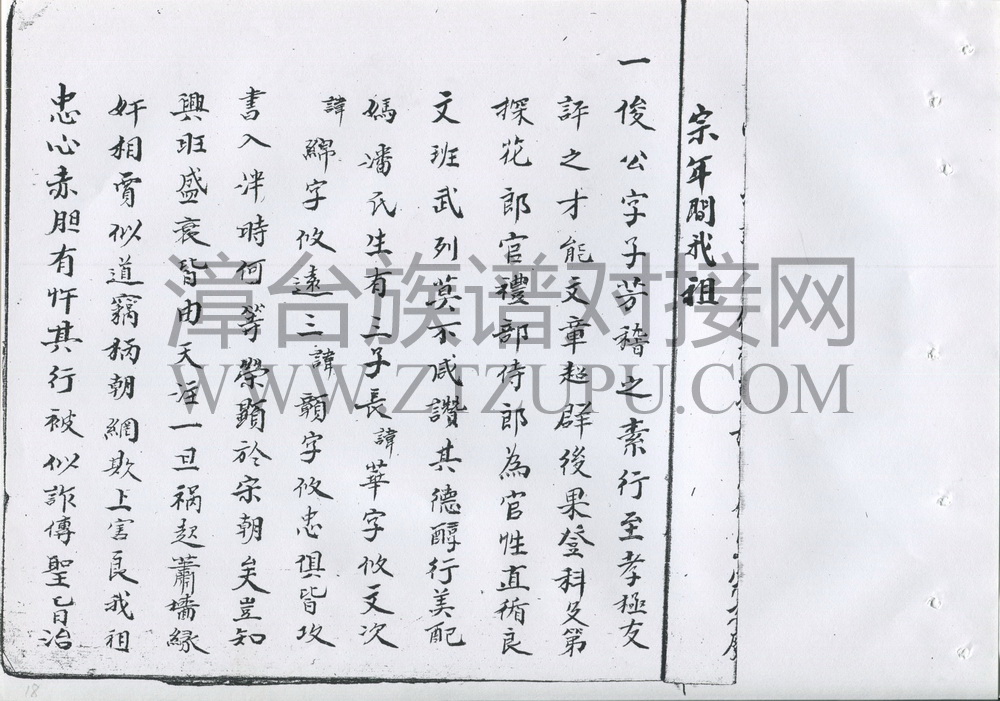 宗年間我祖
一俊公字子芳稽之素行至孝極友
評之才能文章超群後果登科及第
探花郎官禮部侍郎為官性直循良
文班武列莫不咸讚其德醇行美配
媽潘氏生有三子長諱華字攸文次
諱綿字攸遠三諱顯字攸忠俱皆攻
書入泮時何等榮顯於宋朝矣豈知
興旺盛衰皆由天註一旦禍起蕭墻緣
奸相賈似道竊柄朝綱欺上害良我祖
忠心赤胆有忤其行被似詐傳聖旨治
漳台族谱对接网
WWW.ZTZUPU.COM
18